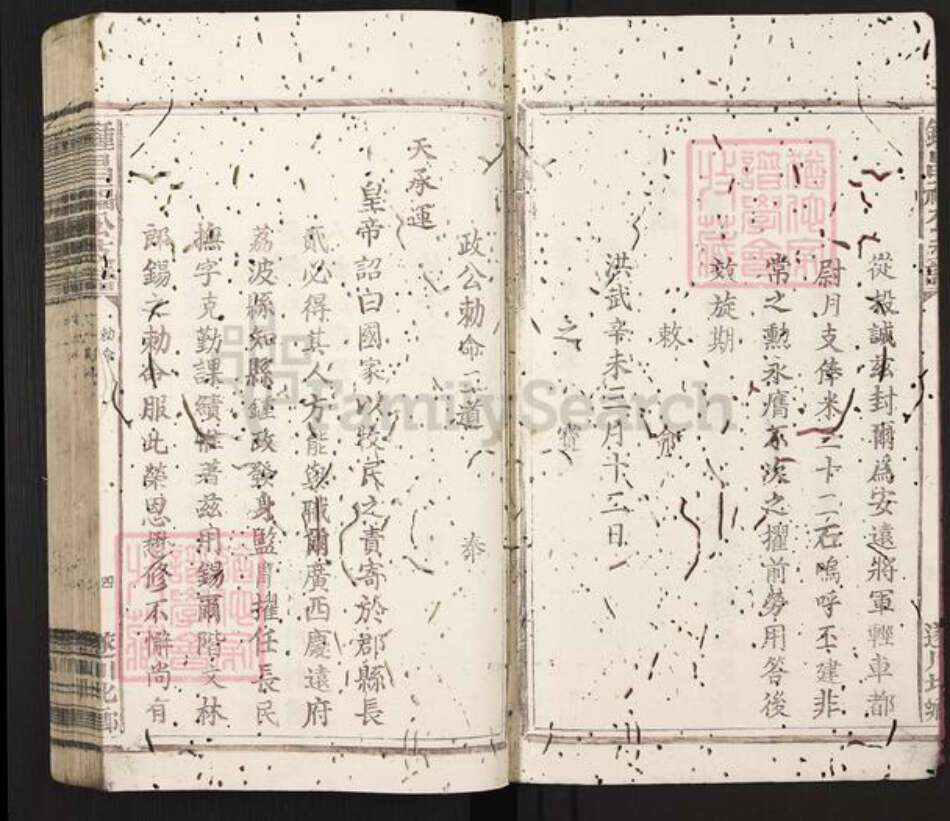 從投誠茲封爾爲安遠將軍輕車都
尉月支俸米三十二石嗚呼丕建非
常之勳永膺不次之擢前勞用答後
效旋期
敕命
之寶
洪武辛未三月十三日
政公勅命二道
奉
天承運
皇帝詔曰國家以牧民之責寄於郡縣長
貳必得其人方能與職爾廣西慶遠府
荔波縣知縣鍾政發身監冑擢任長民
撫字克勤課績惟著茲用錫爾階文林
郎錫之勅命服此榮恩懋修不懈尚有
勅命
四
FamilySearch